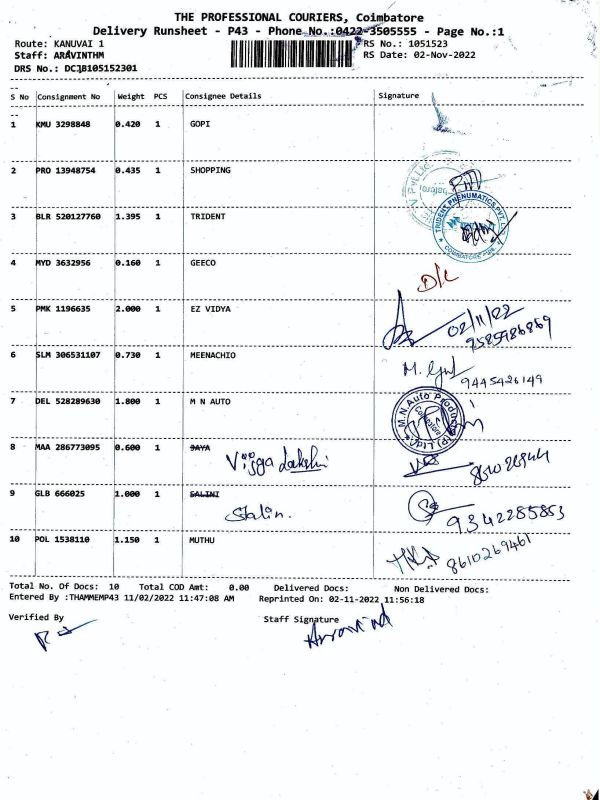 THE PROFESSIONAL COURIERS, Coimbatore
Delivery Runsheet - P43 - Phone No.:0422-3505555 - Page No.:1
Route: KANUVAI 1 RS No.: 1051523
Staff: ARAVINTHM RS Date: 02-Nov-2022
DRS No.: DCJB105152301
S No Consignment No Weight PCS Consignee Details Signature
1 KMU 3298848 0.420 1 GOPI
2 PRO 13948754 0.435 1 SHOPPING
3 BLR 520127760 1.395 1 TRIDENT
TRIDENT PNEUMATICS PVT. LTD.
COIMBATORE
4 MYD 3632956 0.160 1 GEECO D/L
5 PMK 1196635 2.000 1 EZ VIDYA 02/11/22
9585986869
6 SLM 306531107 0.730 1 MEENACHIO M.
9445426149
7 DEL 528289630 1.800 1 M N AUTO
M.N. Auto Products (P) Ltd.
8 MAA 286773095 0.600 1 JAYA
9 GLB 666025 1.000 1 SALINI
Stalin. 9342285853
10 POL 1538110 1.150 1 MUTHU 8610269461
Total No. Of Docs: 10 Total COD Amt: 0.00 Delivered Docs: Non Delivered Docs:
Entered By :THAMMEMP43 11/02/2022 11:47:08 AM Reprinted On: 02-11-2022 11:56:18
Verified By Staff Signature
Arravind